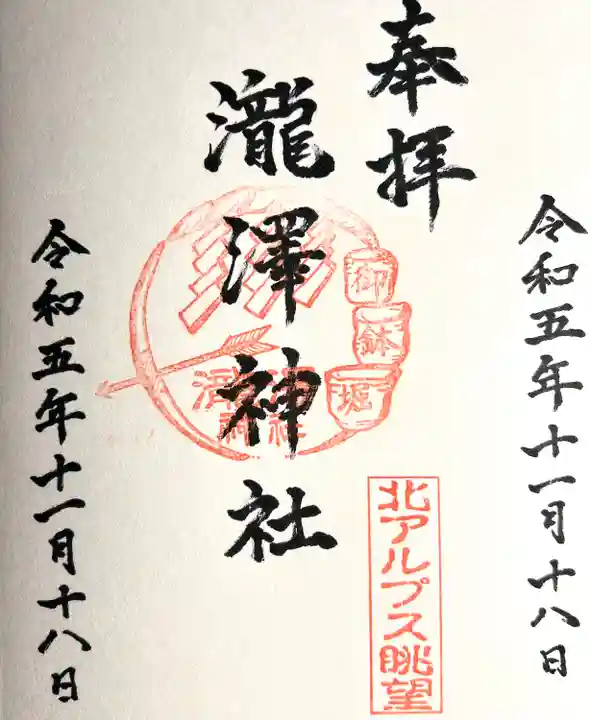 令和五年十一月十八日
奉拝
御鉢堀
北アルプス眺望
瀧澤神社
瀧澤神社
令和五年十一月十八日